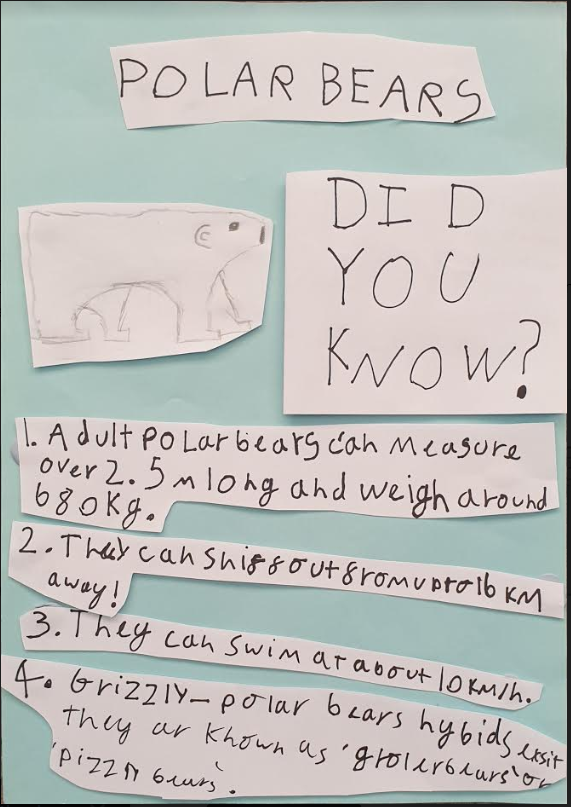 POLAR BEARS
DID
YOU
KNOW?
1. Adult polar bears can measure
over 2.5 m long and weigh around
680kg.
2. They can sniff out from up to 16 KM
away!
3. They can swim at about 10 KM/h.
4. Grizzly-polar bears hybids exsit
they ar known as 'grolerbears' or
'pizzly bears'.